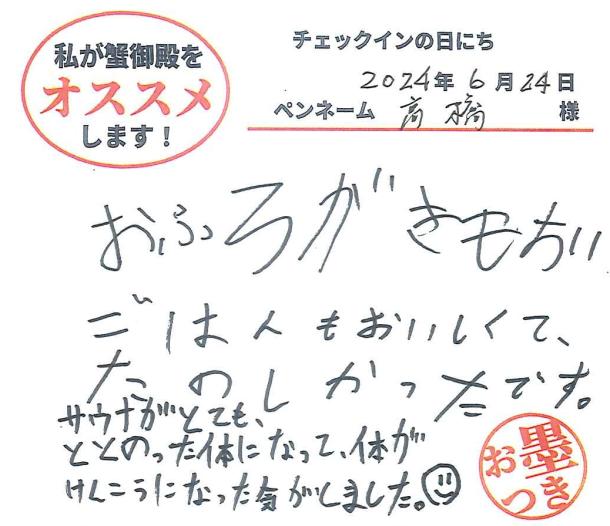 私が蟹御殿を
オススメ
します！
チェックインの日にち
2024年6月24日
ペンネーム 高橋 様
おふろがきもちい
ごはんもおいしくて、
たのしかったです。
サウナがとても、
ととのった体になって、体が
けんこうになった気がしました。
お墨つき